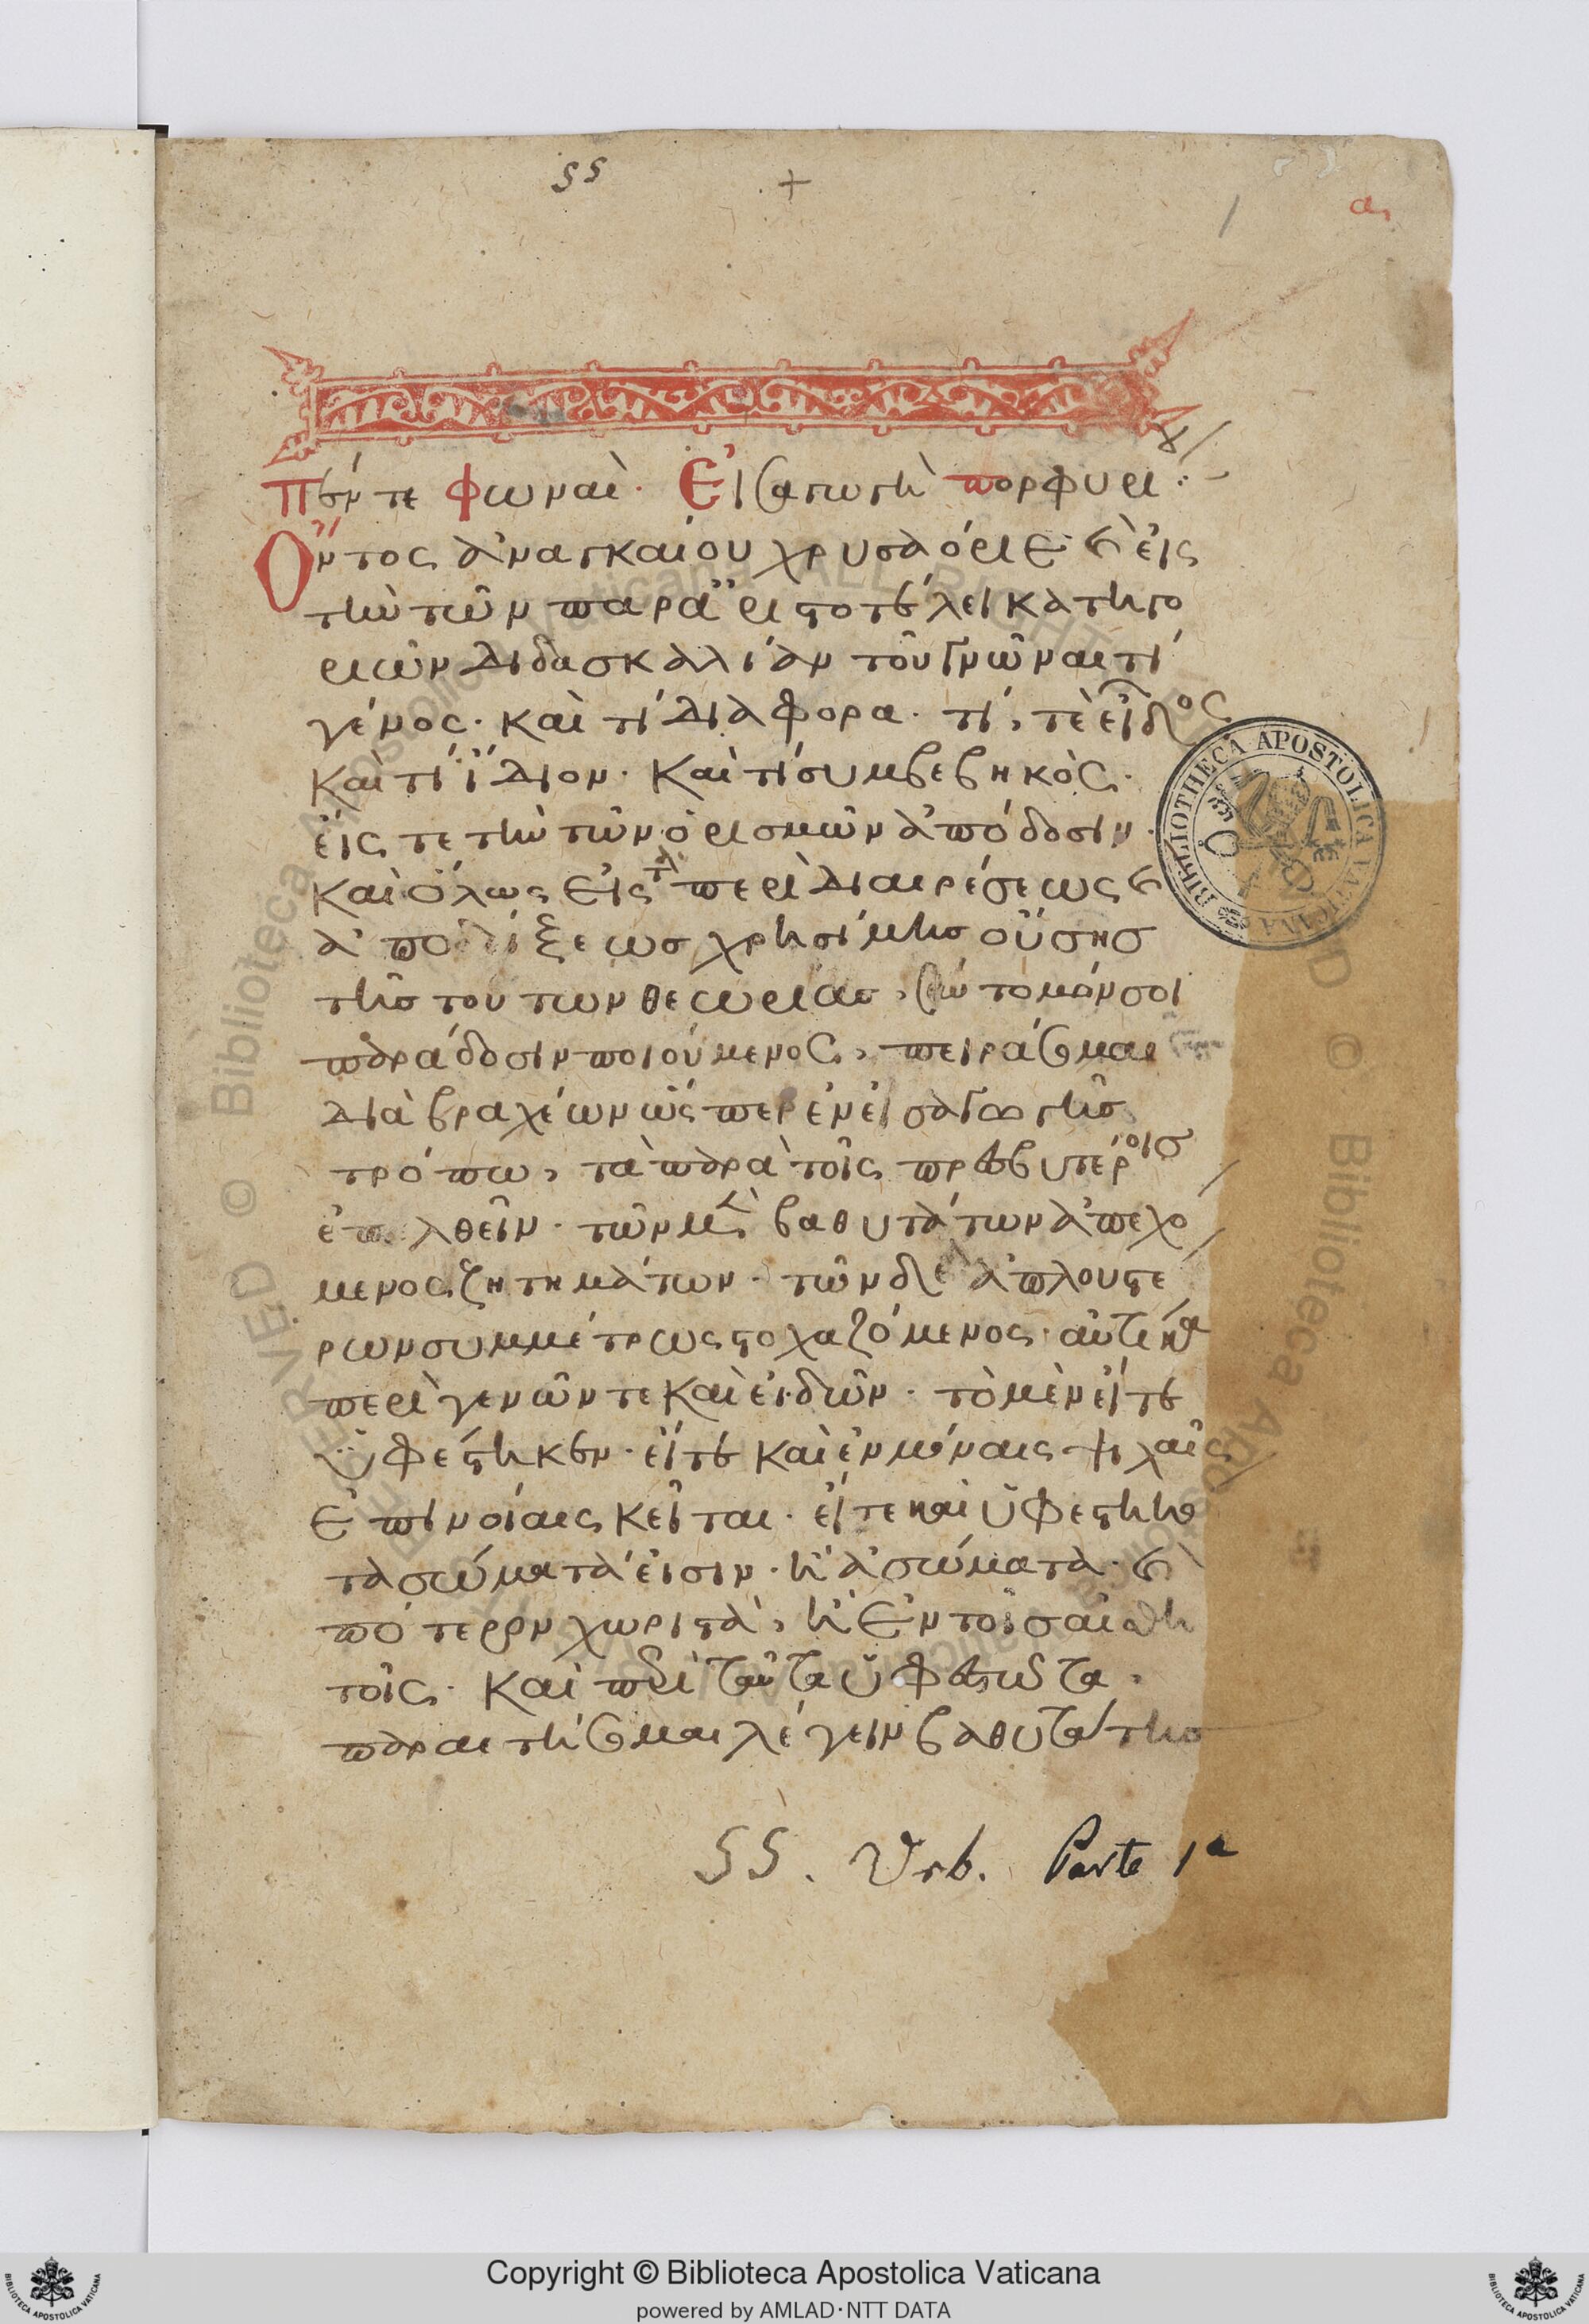 55 +
1 α
Πέντε φωναὶ· Εἰσαγωγὴ πορφυρίου:~
Ὄντος ἀναγκαίου χρυσαόριε· καὶ εἰς
τὴν τῶν παρὰ ἀριστοτέλει κατηγο
ριῶν διδασκαλίαν τοῦ γνῶναι τί
γένος· καὶ τί διαφορα· τί, τὲ εἶδος
καὶ τί ἴδιον· Καὶ τί συμβεβηκὸς·
εἴς τε τὴν τῶν ὁρισμῶν ἀπόδοσιν·
καὶ ὅλως εἰς τὰ περὶ διαιρέσεως καὶ
ἀποδείξεως χρησίμης οὔσης
τῆς τουτων θεωρίας, σύντομόν σοι
παράδοσιν ποιούμενος, πειράσομαι
διὰ βραχέων ὥσπερ ἐν εἰσαγωγῆς
τρόπω, τὰ παρὰ τοῖς πρεσβυτέροις
ἐπελθεῖν· τῶν μὲν βαθυτάτων ἀπεχό
μενος ζητημάτων· τῶν δὲ ἁπλουστέ
ρων συμμέτρως στοχαζόμενος· αὐτίκα
περὶ γενῶν τε καὶ εἰδῶν· τὸ μὲν εἴτε
ὑφέστηκεν· εἴτε καὶ ἐν μόναις ψιλαῖς
ἐπινοίαις κεῖται· εἴτε καὶ ὑφεστηκό
τα σώματά εἰσιν· ἢ ἀσώματα· καὶ
πότερον χωριστὰ, ἢ ἐν τοῖς αἰσθη
τοῖς· καὶ περὶ ταῦτα ὑφεστῶτα·
παραιτήσομαι λέγειν βαθυτάτης
55. Urb. Parte 1ª
BIBLIOTHECA APOSTOLICA VATICANA
Copyright © Biblioteca Apostolica Vaticana
powered by AMLAD·NTT DATA